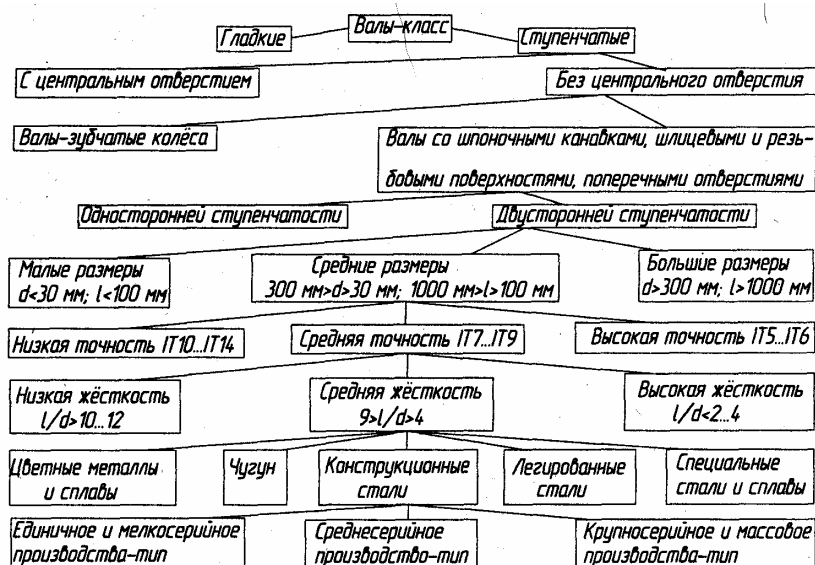 Валы-класс
Гладкие
Ступенчатые
С центральным отверстием
Без центрального отверстия
Валы-зубчатые колёса
Валы со шпоночными канавками, шлицевыми и резь-
бовыми поверхностями, поперечными отверстиями
Односторонней ступенчатости
Двусторонней ступенчатости
Малые размеры
d<30 мм; l<100 мм
Средние размеры
300 мм>d>30 мм; 1000 мм>l>100 мм
Большие размеры
d>300 мм; l>1000 мм
Низкая точность IT10...IT14
Средняя точность IT7...IT9
Высокая точность IT5...IT6
Низкая жёсткость
l/d>10...12
Средняя жёсткость
9>l/d>4
Высокая жёсткость
l/d<2...4
Цветные металлы
и сплавы
Чугун
Конструкционные
стали
Легированные
стали
Специальные
стали и сплавы
Единичное и мелкосерийное
производства-тип
Среднесерийное
производство-тип
Крупносерийное и массовое
производства-тип